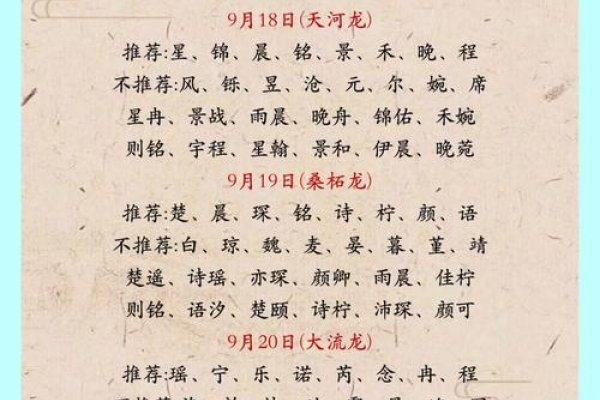 9月18日(天河龙)
推荐:星、锦、晨、铭、景、禾、晚、程
不推荐:风、铄、昱、沧、元、尔、婉、席
星冉、景战、雨晨、晚舟、锦佑、禾婉
则铭、宇程、星翰、景和、伊晨、晚菀
9月19日(桑柘龙)
推荐:楚、晨、琛、铭、诗、柠、颜、语
不推荐:白、琼、魏、麦、晏、暮、董、靖
楚遥、诗瑶、亦琛、颜卿、雨晨、佳柠
则铭、语汐、楚颐、诗柠、沛琛、颜可
9月20日(大流龙)
推荐:瑶、宁、乐、诺、芮、念、冉、程